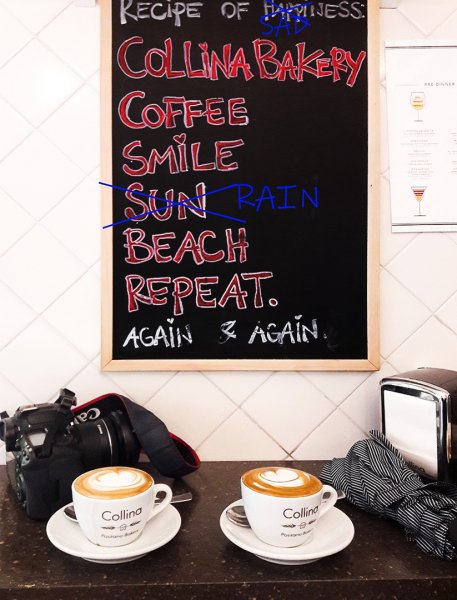 RECIPE OF HAPPINESS:
SAD
COLLINA BAKERY
COFFEE
SMILE
SUN RAIN
BEACH
REPEAT.
AGAIN & AGAIN.
PRE DINNER
Ca
Collina
Positano Bakery
Collina
Positano Bakery